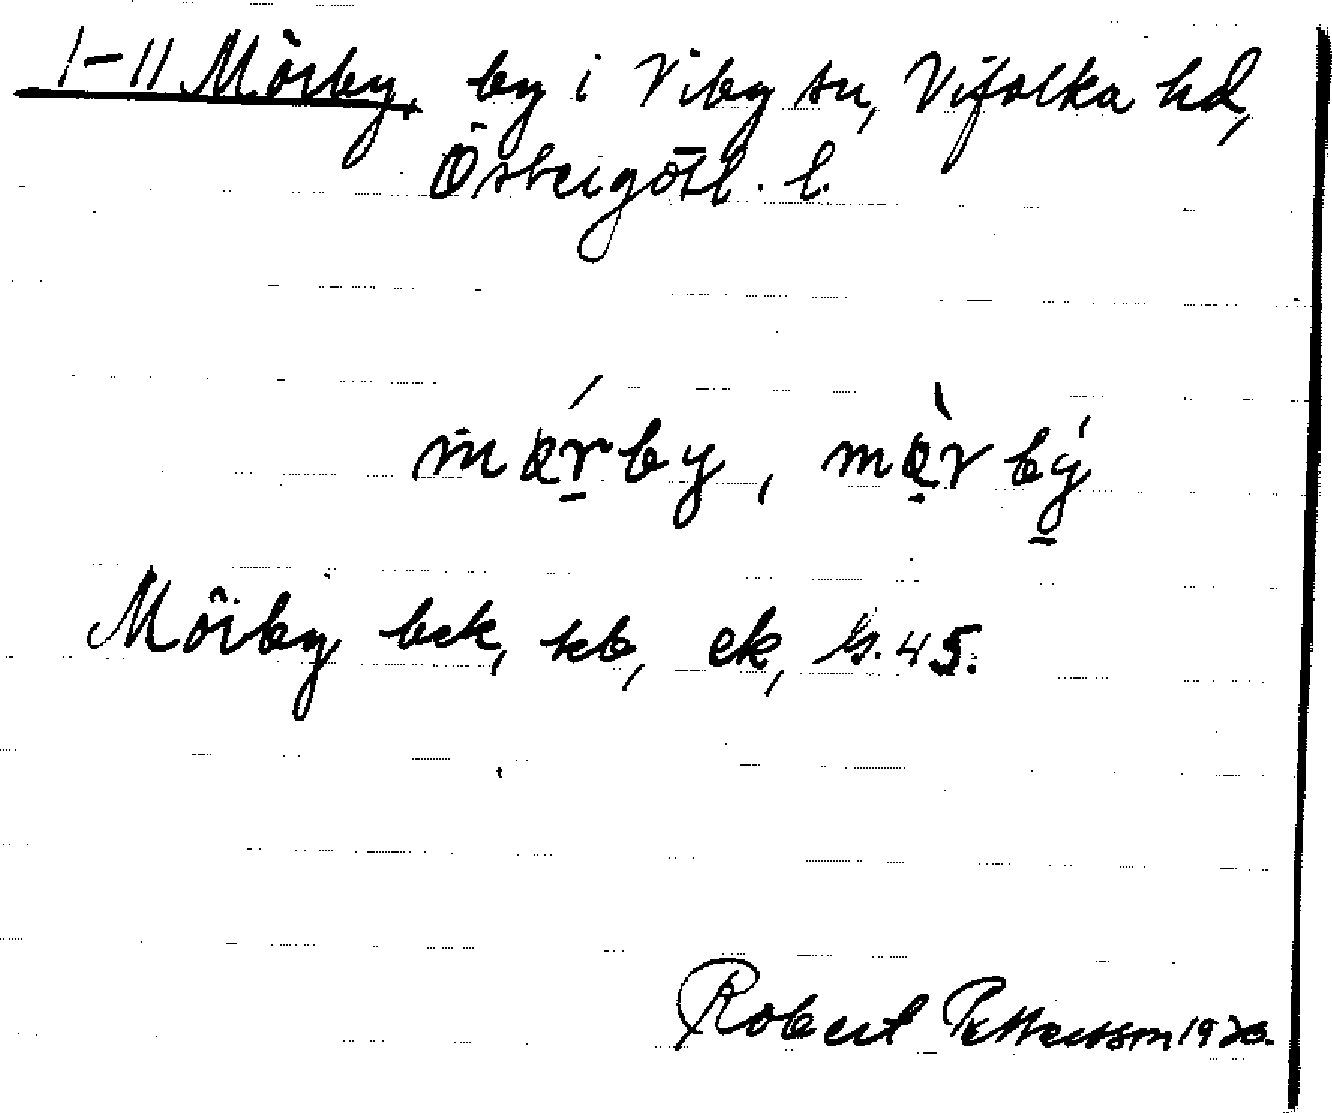 I-II Mörby, by i Viby sn, Vifolka hd,
Östergötl. l.
Mörby bek, kb, ek, bl. 45.
Robert Pettersson 1920.